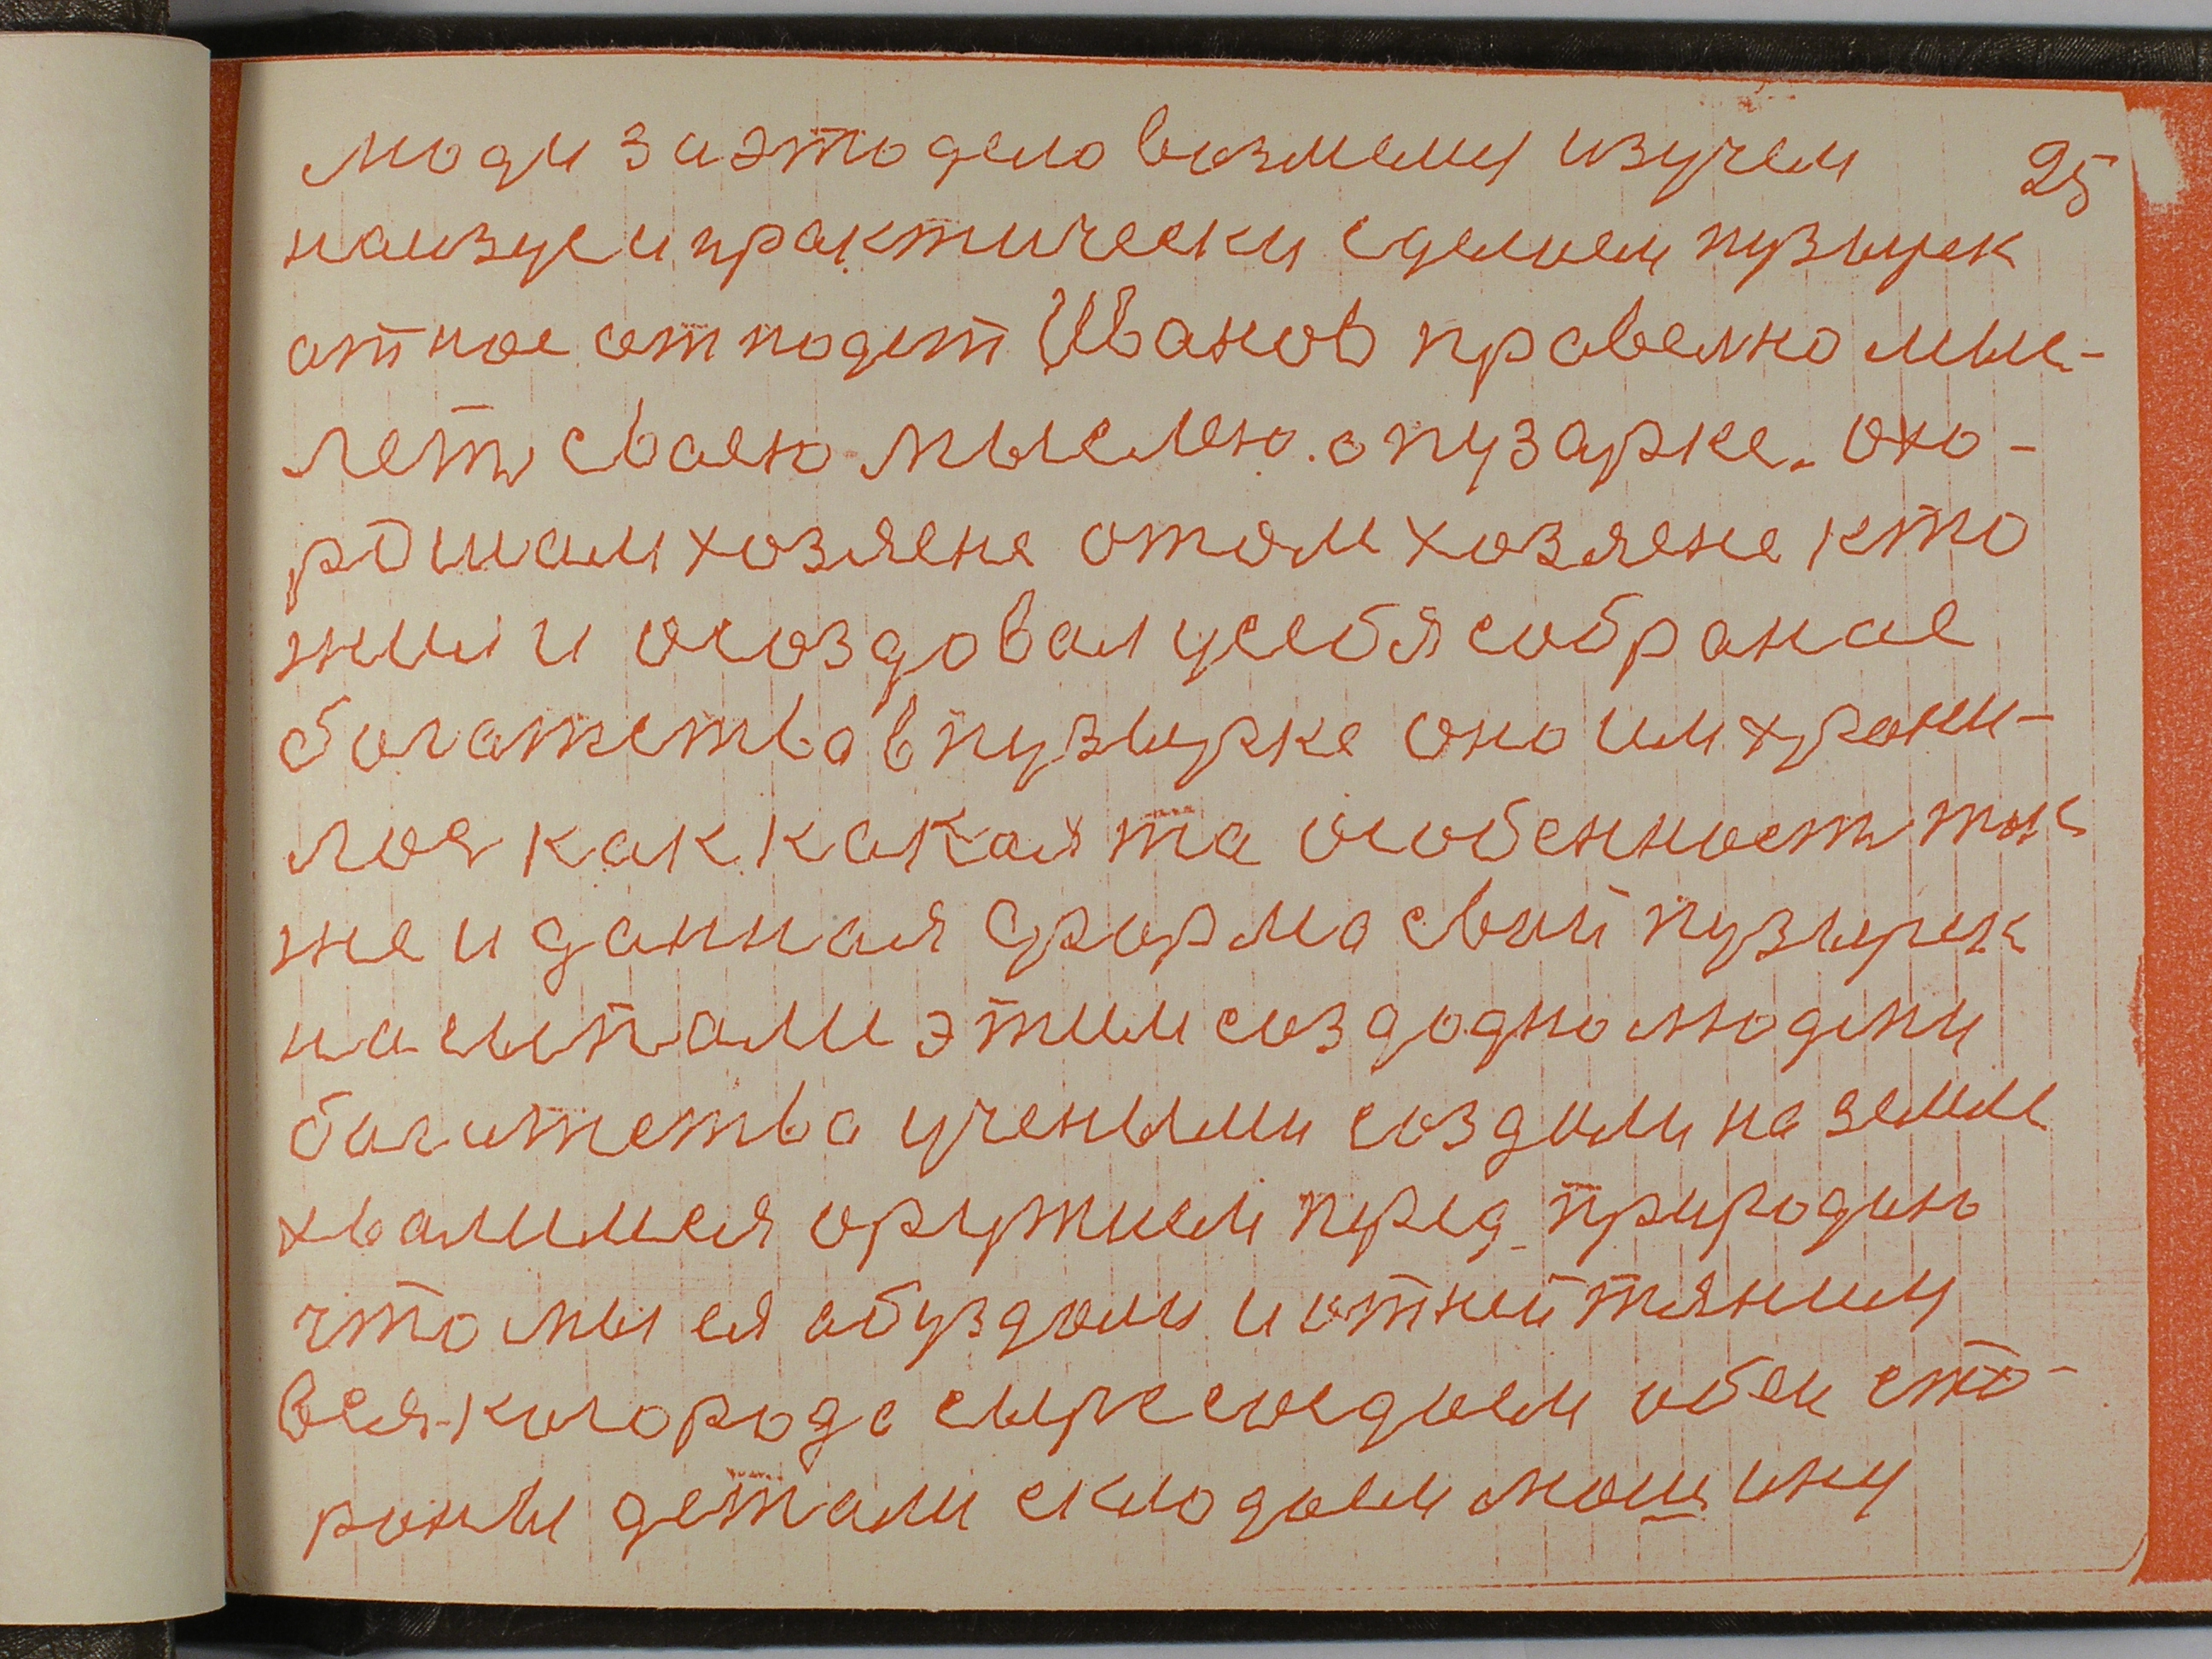 люди за это дело возмемы изучем 25
наизус и практически сделаем пузырек
от нас отподет Иванов правелно мыс-
леть сваею мыслею о пузарке. охо-
рошам хозяене отом хозяене кто
жил и осоздовал усебя собрание
богатства в пузырке оно им храни-
лоя как какая та особенность так
же и данная форма свой пузырек
насыпали этим создодно людми
богатства учеными создали на земле
хвалимся оружием перед природою
что мы ея абуздали и отней тянимы
вся-когорода сыре соедаем обеи сто-
роны детали склодоем машину